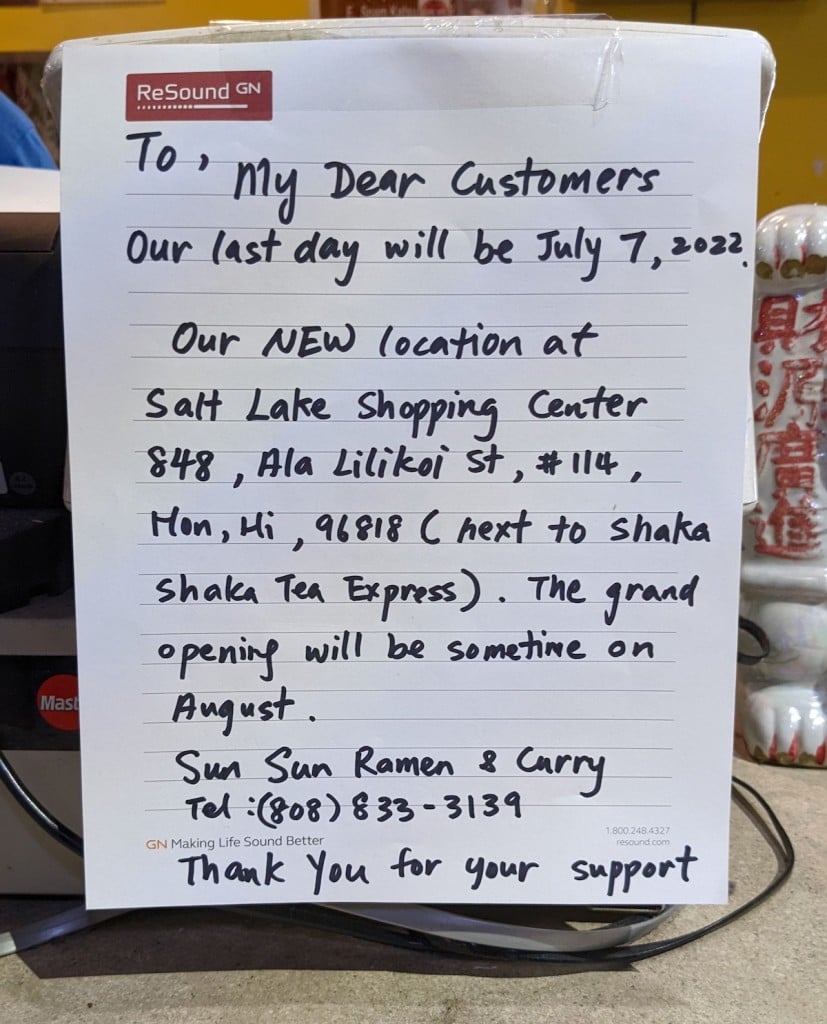 ReSound GN
To, My Dear Customers
Our last day will be July 7, 2022.
Our NEW location at
Salt Lake Shopping Center
848, Ala Lilikoi St, #114,
Hon, Hi, 96818 ( next to shaka
shaka Tea Express). The grand
opening will be sometime on
August.
Sun Sun Ramen & Curry
Tel :(808) 833-3139
1.800.248.4327
GN Making Life Sound Better
resound.com
Thank You for your support
Mast
財源廣進